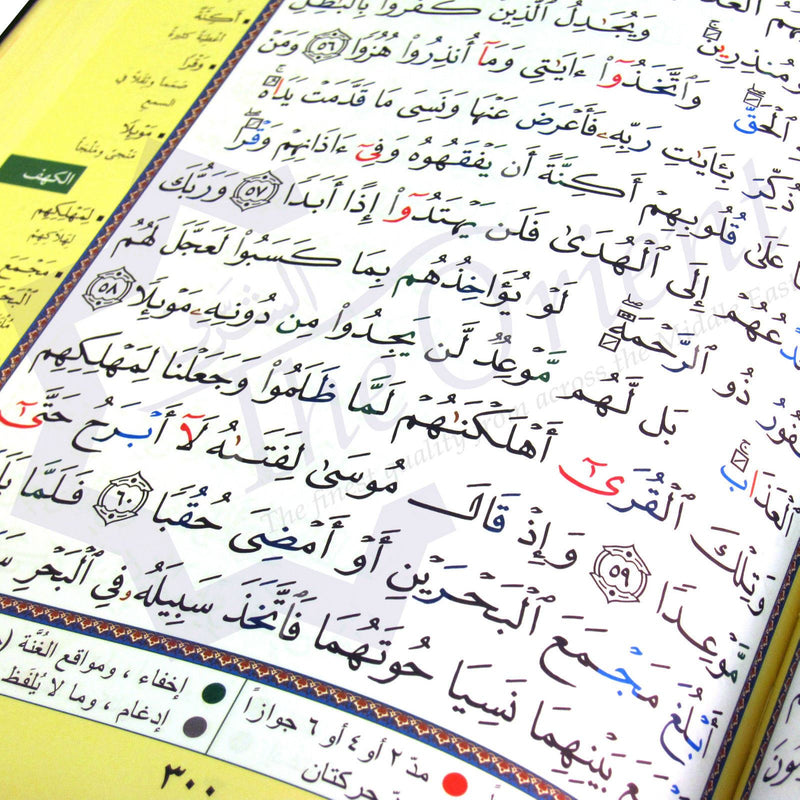 وَمُنذِرِينَ وَيُجَٰدِلُ ٱلَّذِينَ كَفَرُوا۟ بِٱلْبَٰطِلِ
ٱلْحَقَّ وَٱتَّخَذُوٓا۟ ءَايَٰتِى وَمَآ أُنذِرُوا۟ هُزُوًا ٥٦ وَمَنْ
ذُكِّرَ بِـَٔايَٰتِ رَبِّهِۦ فَأَعْرَضَ عَنْهَا وَنَسِىَ مَا قَدَّمَتْ يَدَاهُ
عَلَىٰ قُلُوبِهِمْ أَكِنَّةً أَن يَفْقَهُوهُ وَفِىٓ ءَاذَانِهِمْ وَقْرًا
إِلَى ٱلْهُدَىٰ فَلَن يَهْتَدُوٓا۟ إِذًا أَبَدًا ٥٧ وَرَبُّكَ
ذُو ٱلرَّحْمَةِ لَوْ يُؤَاخِذُهُم بِمَا كَسَبُوا۟ لَعَجَّلَ لَهُمُ
ٱلْعَذَابَ بَل لَّهُم مَّوْعِدٌ لَّن يَجِدُوا۟ مِن دُونِهِۦ مَوْئِلًا ٥٨
وَتِلْكَ ٱلْقُرَىٰٓ أَهْلَكْنَٰهُمْ لَمَّا ظَلَمُوا۟ وَجَعَلْنَا لِمَهْلِكِهِم
مَّوْعِدًا ٥٩ وَإِذْ قَالَ مُوسَىٰ لِفَتَىٰهُ لَآ أَبْرَحُ حَتَّىٰٓ
أَبْلُغَ مَجْمَعَ ٱلْبَحْرَيْنِ أَوْ أَمْضِىَ حُقُبًا ٦٠ فَلَمَّا
بَيْنِهِمَا نَسِيَا حُوتَهُمَا فَٱتَّخَذَ سَبِيلَهُۥ فِى ٱلْبَحْرِ
أَكِنَّةً
أغطية كثيرة
وَقْرًا
صمما وثقلا في
السمع
مَوْئِلًا
منجى وملجأ
الكهف
لِمَهْلِكِهِم
لهلاكهم
مَجْمَعَ
مدّ ٢ أو ٤ أو ٦ جوازاً
حركتان
إخفاء ، ومواقع الغُنَّة
إدغام ، وما لا يُلفَظ
٣٠٠
الشرق
The Orient
The finest quality from across the Middle East